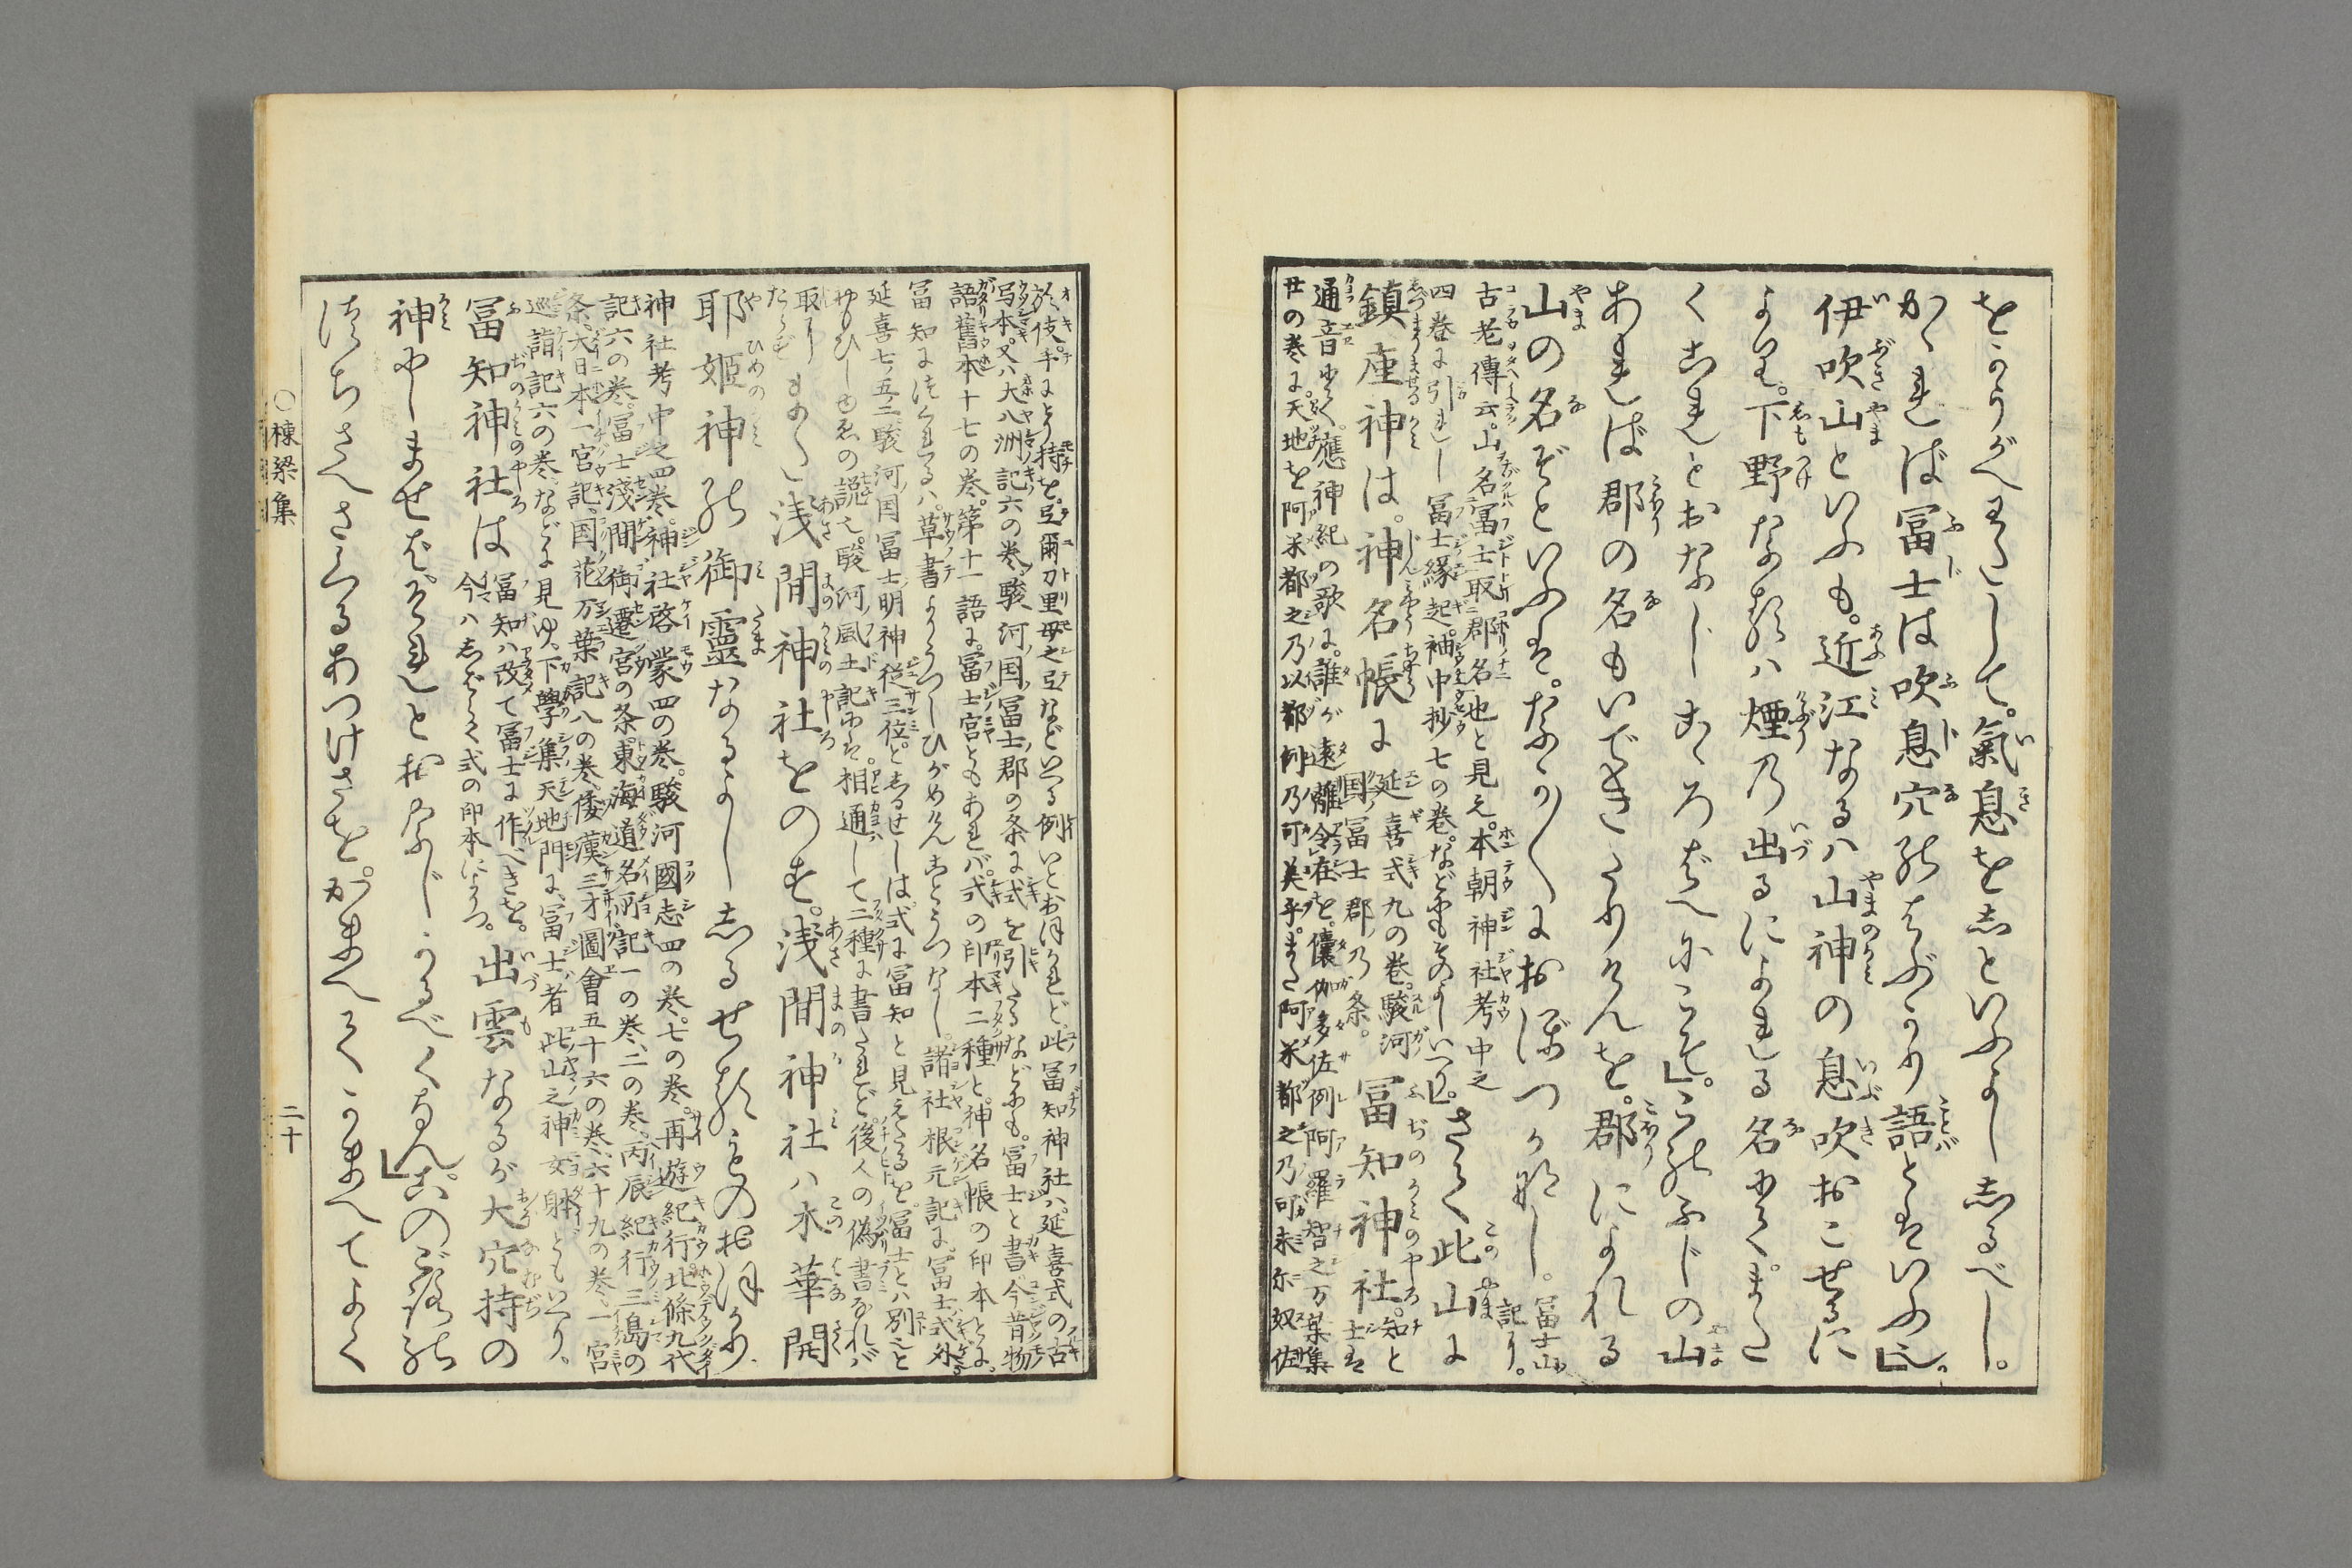 をうかゞへるさまにして。氣息を志といふよし志るべし。
かゝれば冨士は吹息穴のはぶかり語とはいふ也。
伊吹山といふも。近江なるハ山神の息吹おこせるに
より。下野なるハ煙乃出るによれる名にて。また
くこれとおなじこゝろばへにこそ。このふじの山
あれば郡の名もいできにけんを。郡によれる
山の名ぞといふは。なか〳〵におぼつかなし。冨士山記
古老傳云。山名冨士取郡名也と見え。本朝神社考中之
四巻に引れし冨士縁起。袖中抄七の巻。などにもそのよしいへり。さて此山に
鎮座神は。神名帳に延喜式九の巻。駿河国冨士郡乃条。冨知神社。知と士は
通音にて。應神紀の歌に。誰が遠離令在を。儾伽多佐例阿羅智之万葉集
廿の巻に。天地を阿米都之乃以都例乃可美乎。また阿米都之乃可未尓奴佐
於伎。手にとり持を。弖爾力里母之弖などいへる例いとおほかれど。此冨知神社ハ延喜式の古
写本。又ハ大八洲記六の巻。駿河国冨士郡の条に式を引たるなどにも。冨士と書今昔物
語舊本十七の巻。第十一語に。冨士宮ともあれバ。式の印本二種と。神名帳の印本とに。
冨知に作れるハ。草書よりうつしひがめけんことうつなし。諸社根元記に。冨士式外。
延喜七五二駿河国冨士明神従三位。と志るせしは。式に冨知と見えたるを。冨士とハ別也と
おもひしゆゑの説也。駿河風土記には。相通して二種に書たれど。後人の偽書なれバ
取にたらず。また浅間神社をのす。浅間神社ハ木華開
耶姫神の御靈なるよし志るせるものおほかり。
神社考中之四巻。神社啓蒙四の巻。駿河國志四の巻。七の巻。再遊紀行。北條九代
記六の巻。冨士浅間御遷宮の条。東海道名所記一の巻、二の巻。丙辰紀行三島の
条。大日本一宮記。国花万葉記八の巻。倭漢三才圖會五十六の巻、六十九の巻。一宮
巡詣記六の巻。などに見ゆ。下學集天地門に。冨士者此山之神女躰ともいへり。
冨知神社は冨知ハ改て冨士に作べきを。今ハ志ばらく式の印本によりつ。出雲なるが大穴持の
神にしませば。これとおなじかるべくなん。このご論の